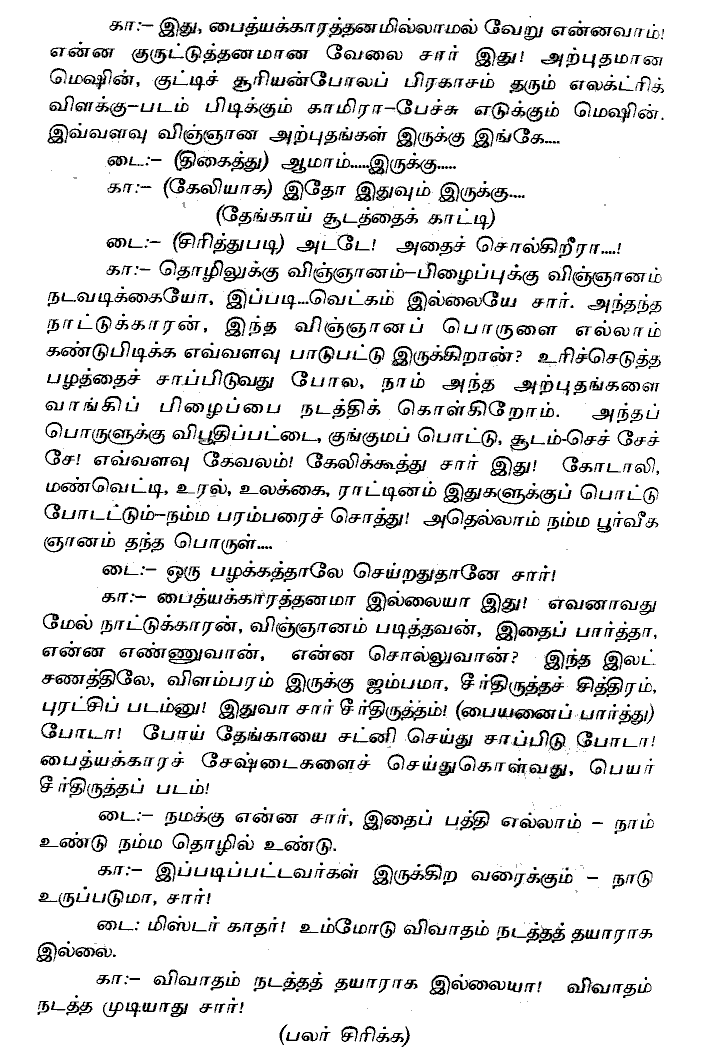 கா:– இது, பைத்யக்காரத்தனமில்லாமல் வேறு என்னவாம்!
என்ன குருட்டுத்தனமான வேலை சார் இது! அற்புதமான
மெஷின், குட்டிச் சூரியன்போலப் பிரகாசம் தரும் எலக்ட்ரிக்
விளக்கு–படம் பிடிக்கும் காமிரா–பேச்சு எடுக்கும் மெஷின்.
இவ்வளவு விஞ்ஞான அற்புதங்கள் இருக்கு இங்கே....
டை:– (திகைத்து) ஆமாம்.....இருக்கு.....
கா:– (கேலியாக) இதோ இதுவும் இருக்கு....
(தேங்காய் சூடத்தைக் காட்டி)
டை:– (சிரித்துபடி) அட்டே! அதைச் சொல்கிறீரா....!
கா:– தொழிலுக்கு விஞ்ஞானம்–பிழைப்புக்கு விஞ்ஞானம்
நடவடிக்கையோ, இப்படி...வெட்கம் இல்லையே சார். அந்தந்த
நாட்டுக்காரன், இந்த விஞ்ஞானப் பொருளை எல்லாம்
கண்டுபிடிக்க எவ்வளவு பாடுபட்டு இருக்கிறான்? உரிச்செடுத்த
பழத்தைச் சாப்பிடுவது போல, நாம் அந்த அற்புதங்களை
வாங்கிப் பிழைப்பை நடத்திக் கொள்கிறோம். அந்தப்
பொருளுக்கு விபூதிப்பட்டை, குங்குமப் பொட்டு, சூடம்-செச் சேச்
சே! எவ்வளவு கேவலம்! கேலிக்கூத்து சார் இது! கோடாலி,
மண்வெட்டி, உரல், உலக்கை, ராட்டினம் இதுகளுக்குப் பொட்டு
போடட்டும்–நம்ம பரம்பரைச் சொத்து! அதெல்லாம் நம்ம பூர்வீக
ஞானம் தந்த பொருள்....
டை:– ஒரு பழக்கத்தாலே செய்றதுதானே சார்!
கா:– பைத்யக்காரத்தனமா இல்லையா இது! எவனாவது
மேல் நாட்டுக்காரன், விஞ்ஞானம் படித்தவன், இதைப் பார்த்தா,
என்ன எண்ணுவான், என்ன சொல்லுவான்? இந்த இலட்
சணத்திலே, விளம்பரம் இருக்கு ஜம்பமா, சீர்திருத்தச் சித்திரம்,
புரட்சிப் படம்னு! இதுவா சார் சீர்திருத்தம்! (பையனைப் பார்த்து)
போடா! போய் தேங்காயை சட்னி செய்து சாப்பிடு போடா!
பைத்யக்காரச் சேஷ்டைகளைச் செய்துகொள்வது, பெயர்
சீர்திருத்தப் படம்!
டை:– நமக்கு என்ன சார், இதைப் பத்தி எல்லாம் – நாம்
உண்டு நம்ம தொழில் உண்டு.
கா:– இப்படிப்பட்டவர்கள் இருக்கிற வரைக்கும் – நாடு
உருப்படுமா, சார்!
டை: மிஸ்டர் காதர்! உம்மோடு விவாதம் நடத்தத் தயாராக
இல்லை.
கா:– விவாதம் நடத்தத் தயாராக இல்லையா! விவாதம்
நடத்த முடியாது சார்!
(பலர் சிரிக்க)